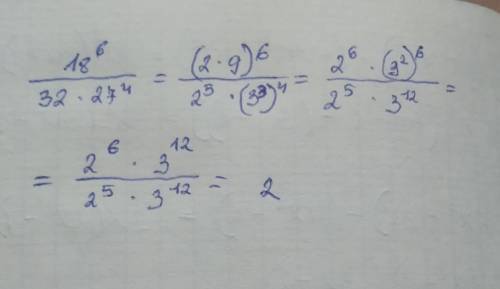 18⁶ / 32 · 27⁴ = (2 · 9)⁶ / 2⁵ · (3³)⁴ = 2⁶ · (3²)⁶ / 2⁵ · 3¹² =
= 2⁶ · 3¹² / 2⁵ · 3¹² = 2